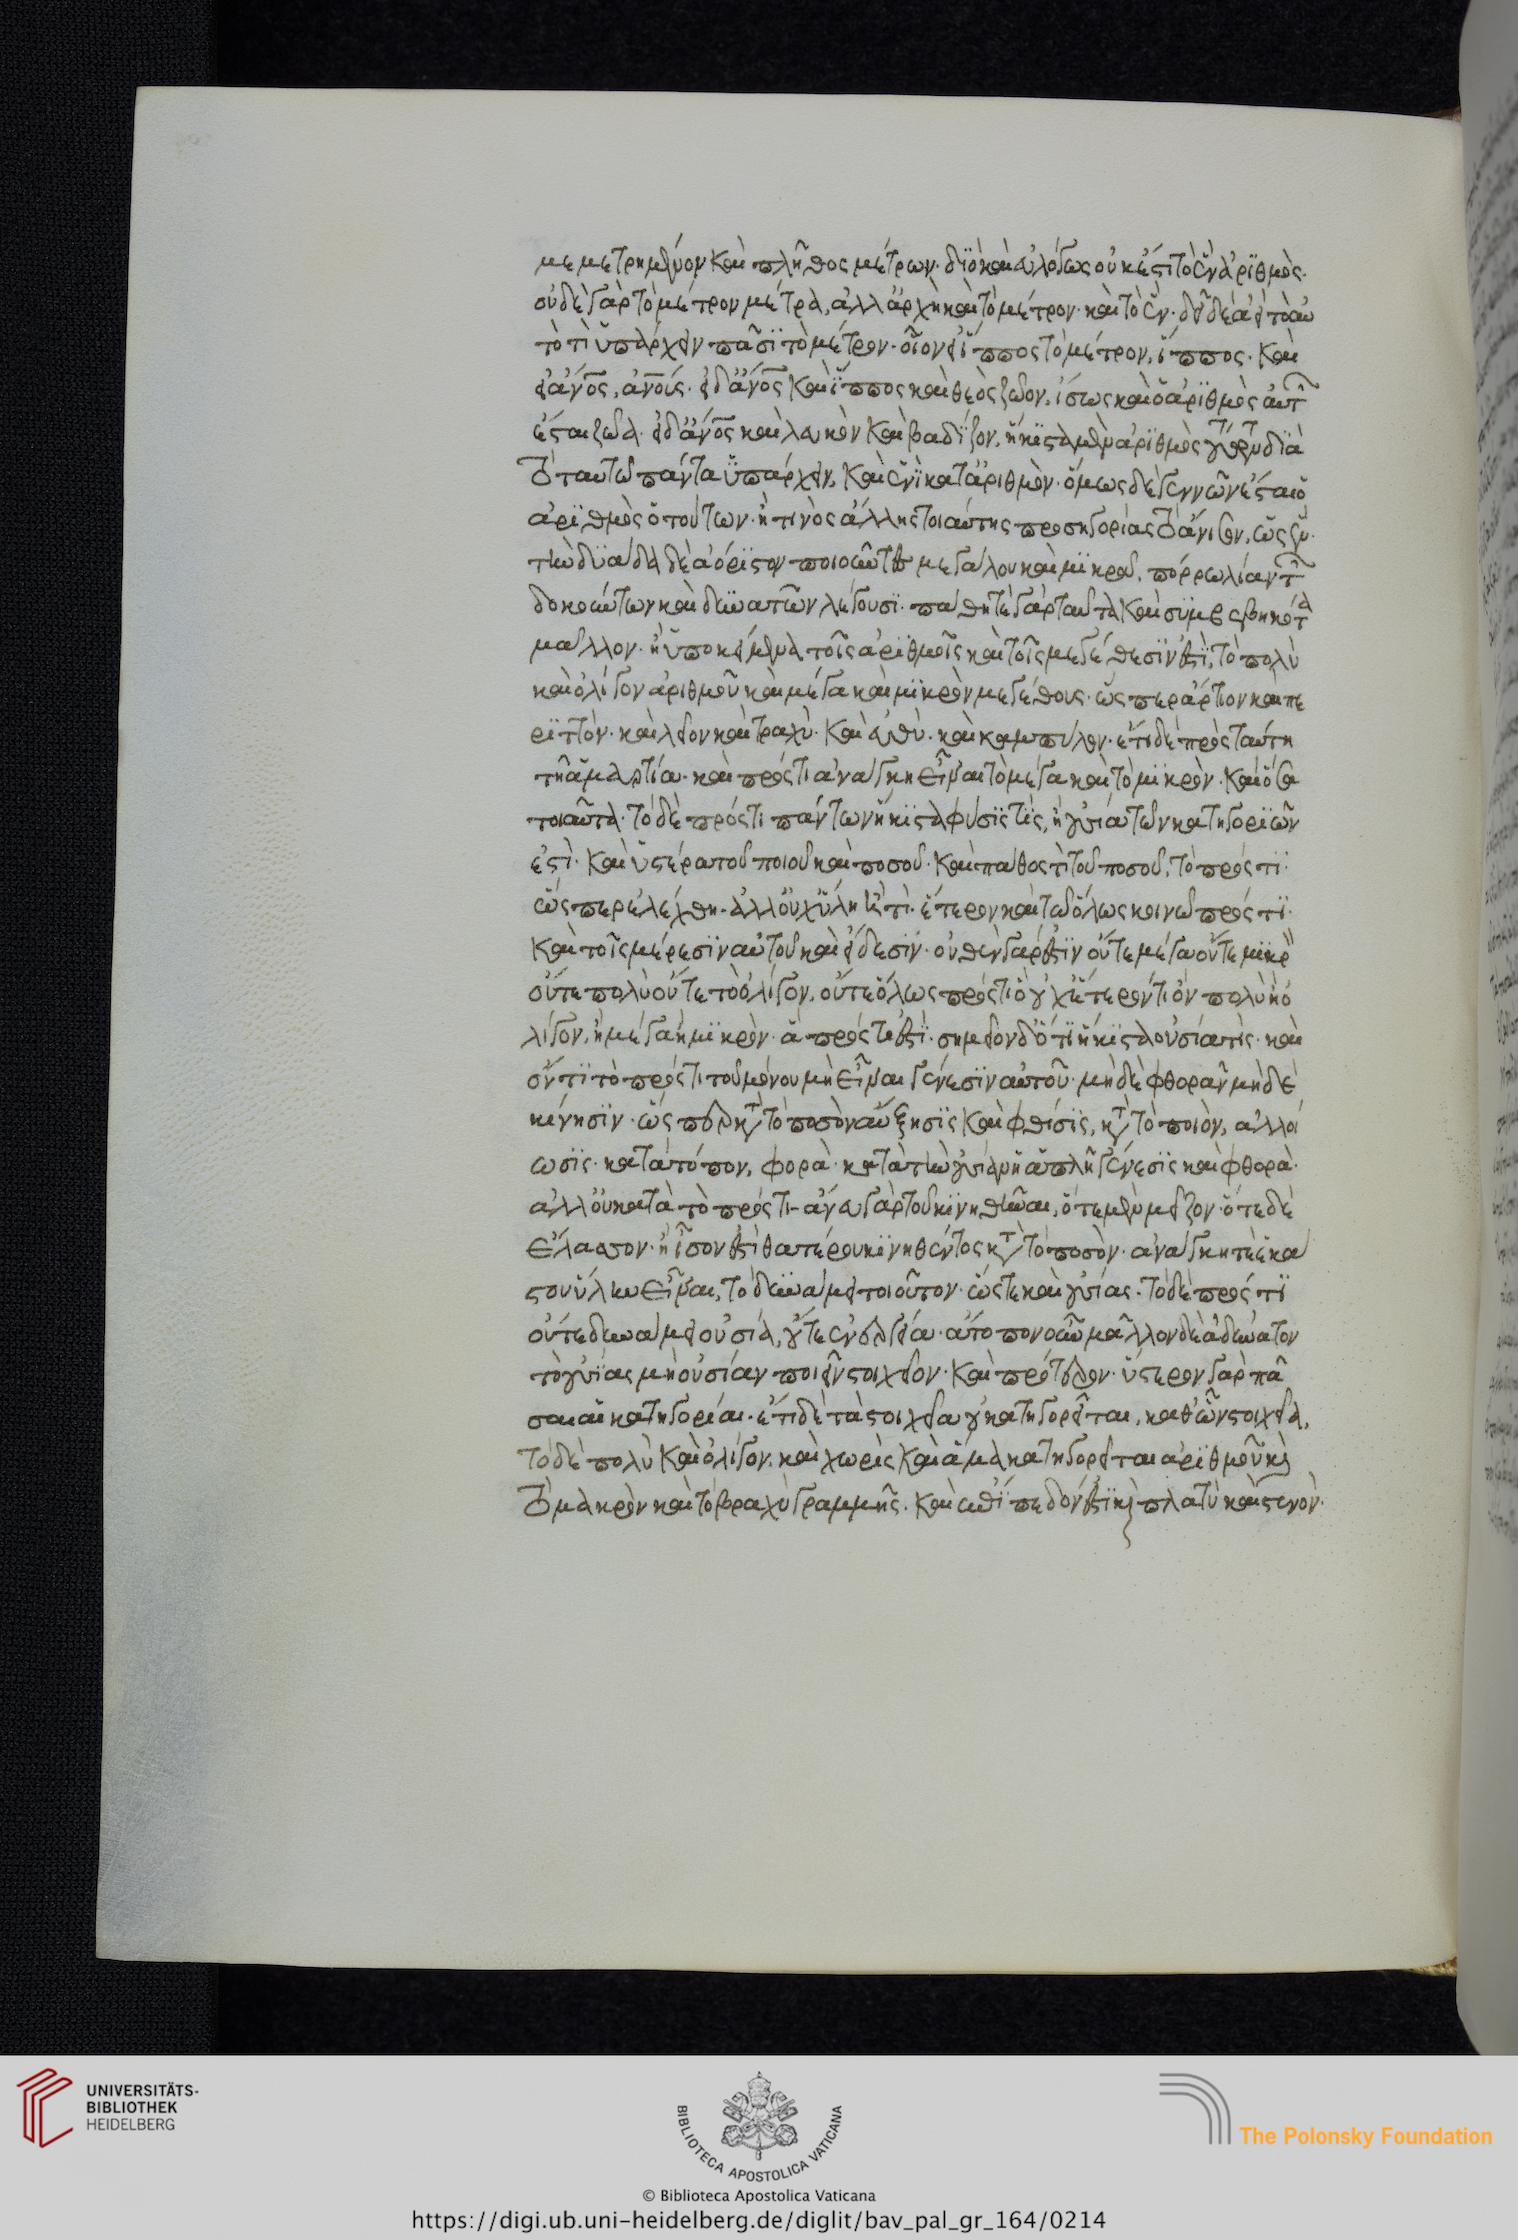 μεμετρημένον καὶ πλῆθος μέτρων· διὸ καὶ εὐλόγως οὐκ ἔστι τὸ ἓν ἀρϊθμὸς·
οὐδὲ γὰρ τὸ μέτρον μέτρα, ἀλλ' ἀρχὴ καὶ τὸ μέτρον· καὶ τὸ ἓν· δεῖ δὲ ἀεὶ τὸ αὐ
τὸ τὶ ὑπάρχειν πᾶσϊ τὸ μέτρον· οἷον εἰ ἵππος τὸ μέτρον, ἵππος· καὶ
εἰ ἄνος, ἀνοις· εἰ δ' ἄνος καὶ ἵππος καὶ θεὸς ζῶον, ἴσως καὶ ὁ ἀρϊθμὸς αὐτ
ἔσται ζῶα· εἰ δ' ἄνος καὶ λευκὸν καὶ βαδίζον, ἥκϊστα μὲν ἀρϊθμὸς τούτων διὰ
τὸ ταυτῶ πάντα ὑπάρχειν, καὶ ἑνὶ κατ' ἀριθμὸν· ὅμως δὲ γεννῶν ἔσται ὁ
ἀρϊθμὸς ὁ τούτων· ἤ τινὸς ἄλλης τοιαύτης προσηγορίας τὸ ἄνισον, ὡς ἕν·
τὴν δϋάδα δὲ ἀόρϊστον ποιοῦντες μεγάλου καὶ μϊκροῦ, πόρρω λίαν τῶν
δοκούντων καὶ δυνατῶν λέγουσϊ· πάθη τὲ γὰρ ταῦτα καὶ συμβεβηκότα
μᾶλλον· ἢ ὑποκείμενα τοῖς ἀρϊθμοῖς καὶ τοῖς μεγέθεσϊν ἐστὶ, τὸ πολὺ
καὶ ὀλίγον ἀριθμοῦ καὶ μέγα καὶ μϊκρὸν μεγέθους· ὥσπερ ἄρτιον καὶ πε
ρϊττὸν· καὶ λεῖον καὶ τραχὺ· καὶ εὐθὺ· καὶ καμπύλον· ἔτι δὲ πρὸς ταύτη
τῆ ἁμαρτία· καὶ πρός τι ἀνάγκη εἶναι τὸ μέγα καὶ τὸ μϊκρὸν· καὶ ὅσα
τοιαῦτα· τὸ δὲ πρός τι πάντων ἥκϊστα φύσϊς τὶς, ἢ οὐσία τῶν κατηγορϊῶν
ἐστὶ· καὶ ὑστέρα τοῦ ποιοῦ καὶ ποσοῦ· καὶ πάθος τὶ τοῦ ποσοῦ, τὸ πρός τϊ·
ὥσπερ ἐλέχθη· ἀλλ' οὐχ ὕλη εἴ τὶ· ἕτερον καὶ τῶ ὅλως κοινῶ πρός τϊ·
καὶ τοῖς μέρεσϊν αὐτοῦ καὶ εἴδεσϊν· οὐθὲν γάρ ἐστϊν οὔτε μέγα οὔτε μϊκρ
οὔτε πολὺ οὔτε τὸ ὀλίγον, οὔτε ὅλως πρός τι ὃ οὐχ ἕτερόν τι ὂν πολὺ ἢ ὀ
λίγον, ἢ μέγα ἢ μϊκρὸν· ἃ πρός τι ἐστὶ· σημεῖον δ' ὅτι ἥκϊστα οὐσία τὶς· καὶ
ὄν τϊ τὸ πρός τι τοῦ μόνου μὴ εἶναι γένεσϊν αὐτοῦ· μὴ δὲ φθορὰν μὴ δὲ
κίνησϊν· ὥσπερ κατὰ τὸ ποσὸν αὔξησϊς καὶ φθίσϊς, κατὰ τὸ ποιὸν, ἀλλοί
ωσϊς· κατὰ τόπον, φορὰ· κατὰ τὴν οὐσίαν ἡ ἁπλῆ γένεσϊς καὶ φθορὰ·
ἀλλ' οὐ κατὰ τὸ πρός τι· ἄνευ γὰρ τοῦ κϊνηθῆναι, ὁτὲ μὲν μεῖζον· ὁτὲ δὲ
ἔλαττον· ἢ ἶσον ἐστὶ θατέρου κϊνηθέντος κατὰ τὸ ποσὸν· ἀνάγκη τὲ ἑκά
στου ὕλην εἶναι, τὸ δυνάμει τοιοῦτον· ὥστε καὶ οὐσίας· τὸ δὲ πρός τϊ
οὔτε δυνάμει οὐσία, οὔτε ἐνεργεία· ἄτοπον οὖν μᾶλλον δὲ ἀδύνατον
τὸ οὐσίας μὴ οὐσίαν ποιεῖν στοιχεῖον· καὶ πρότερον· ὕστερον γὰρ πᾶ
σαι αἱ κατηγορίαι· ἔτι δὲ τὰ στοιχεῖα οὐ κατηγορεῖται, καθ' ὧν στοιχεῖα,
τὸ δὲ πολὺ καὶ ὀλίγον, καὶ χωρὶς καὶ ἅμα κατηγορεῖται ἀρϊθμοῦ καὶ
τὸ μακρὸν καὶ τὸ βραχὺ γραμμῆς· καὶ ἐπίπεδόν ἐστϊ καὶ πλατὺ καὶ στενὸν·
UNIVERSITÄTS-
BIBLIOTHEK
HEIDELBERG
BIBLIOTECA APOSTOLICA VATICANA
The Polonsky Foundation
© Biblioteca Apostolica Vaticana
https://digi.ub.uni-heidelberg.de/diglit/bav_pal_gr_164/0214